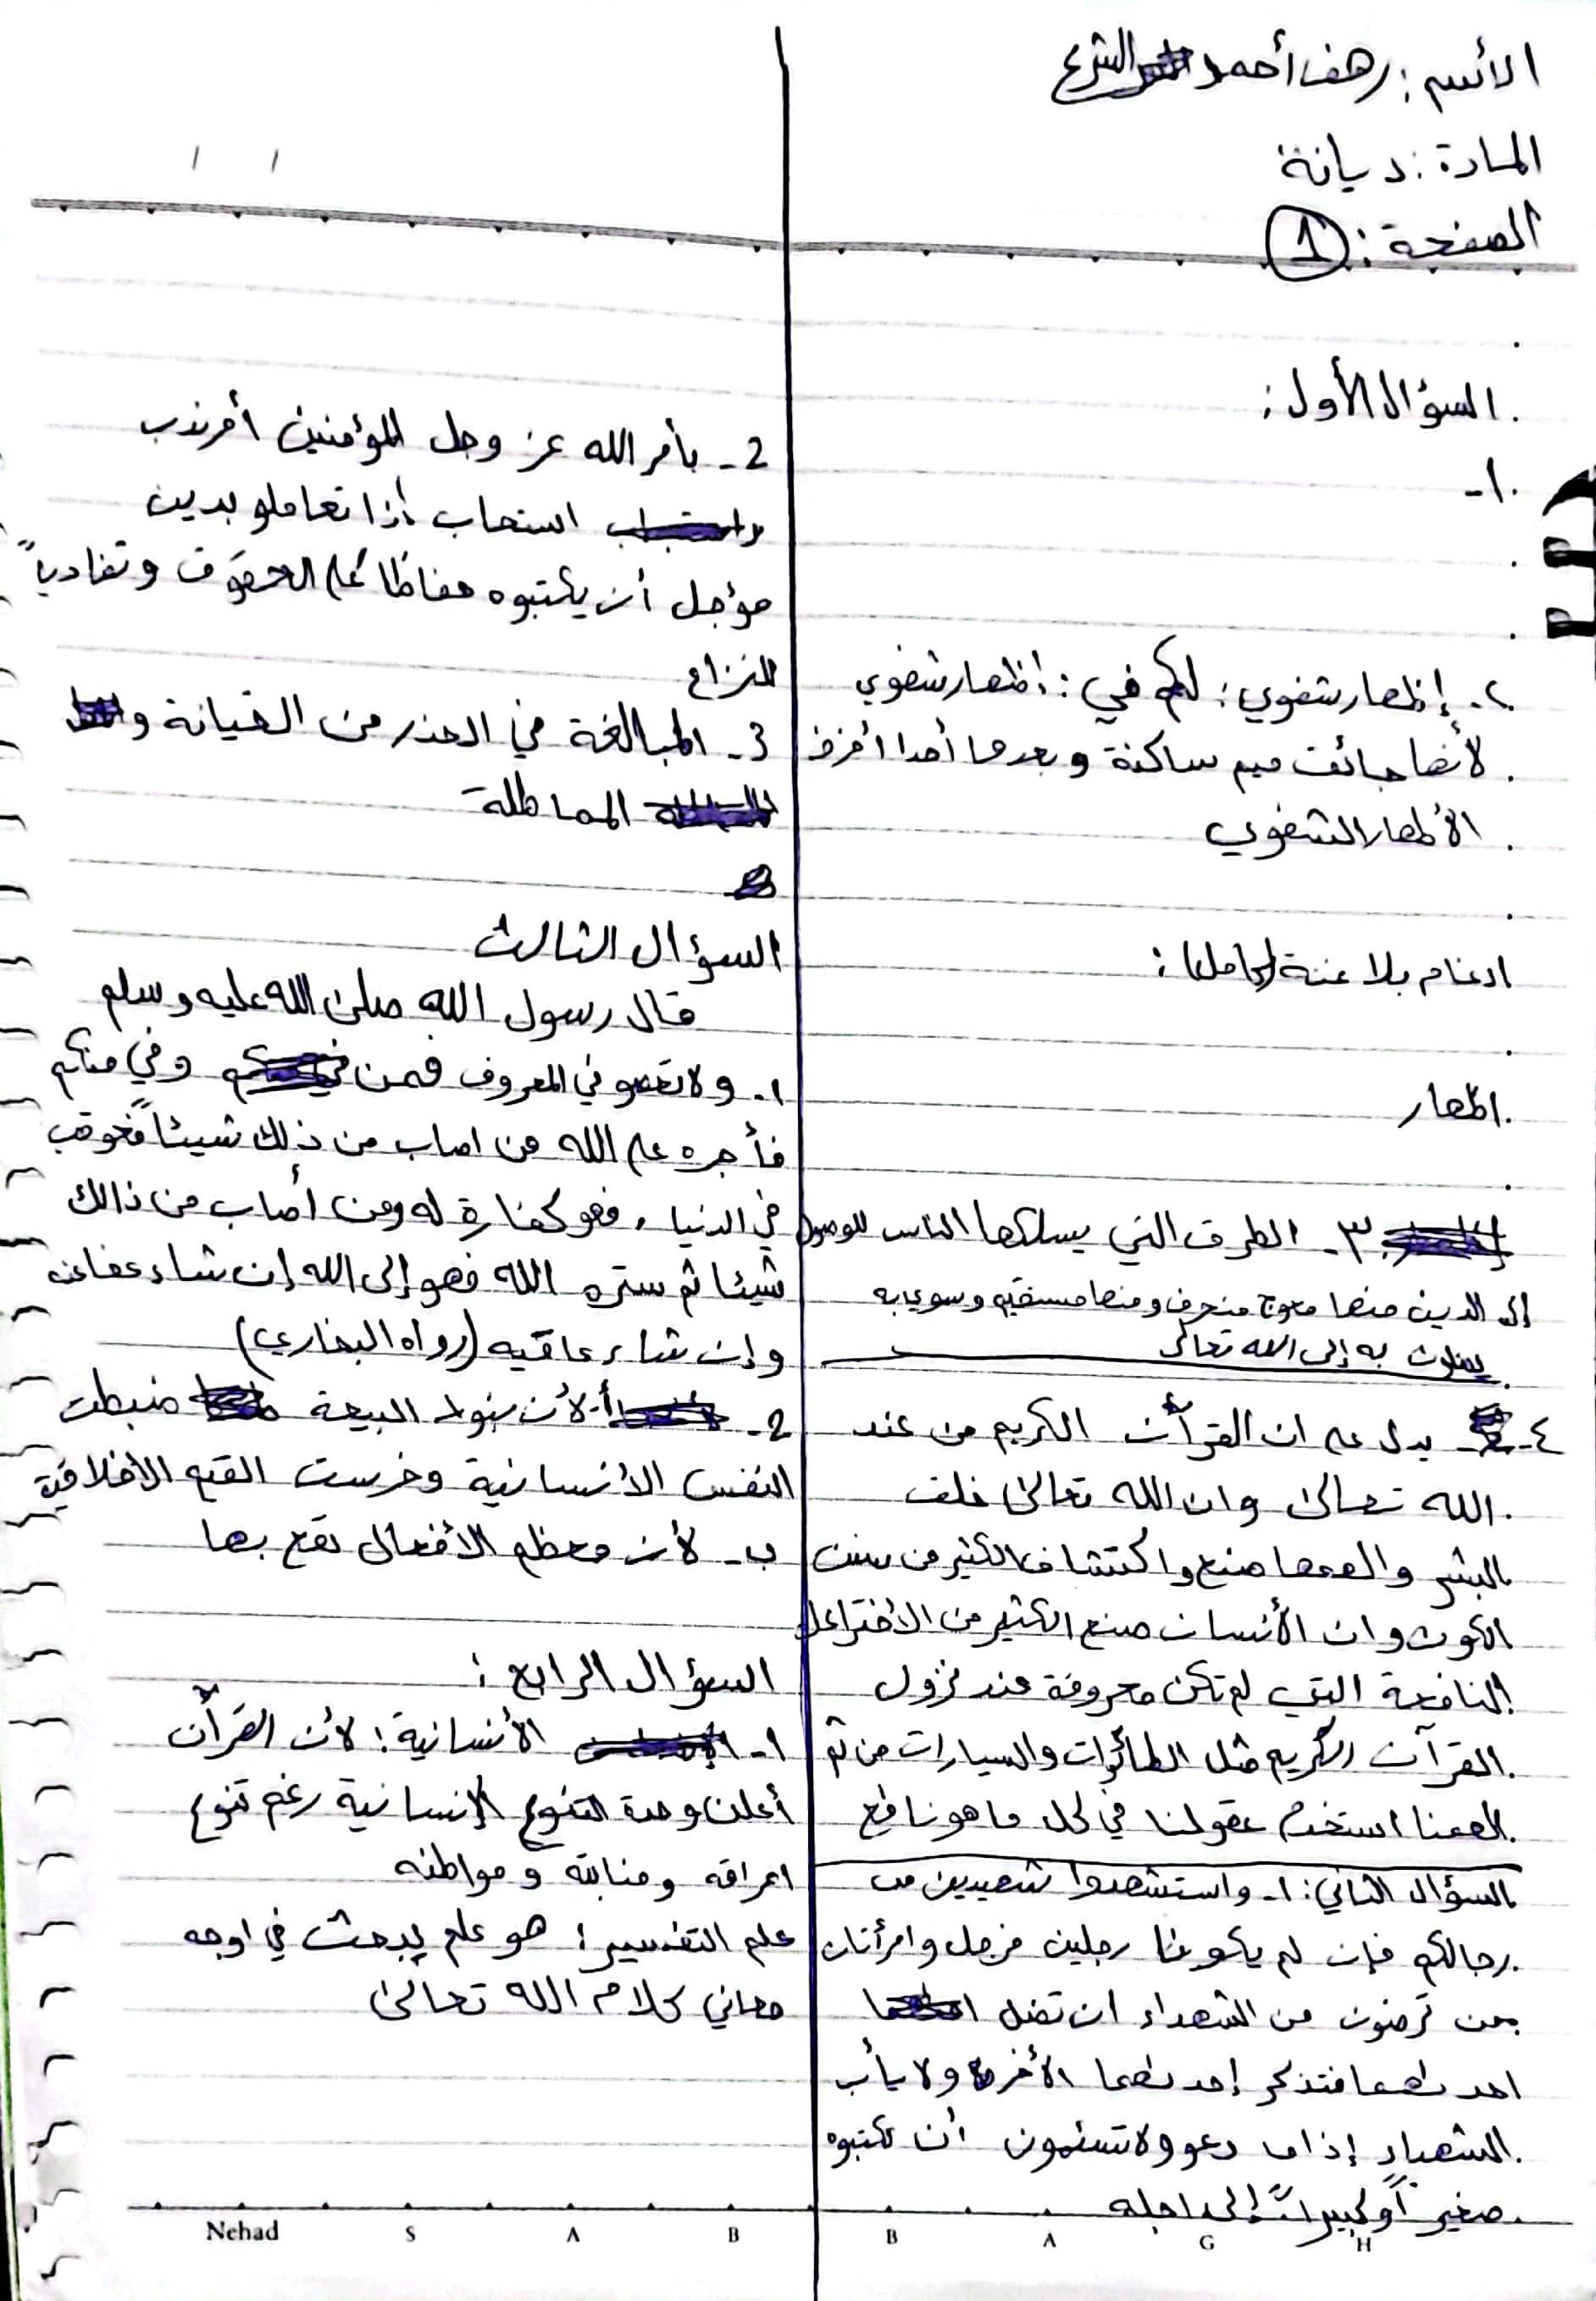 الأسم: رهف أحمد الشرع
المادة: ديانة
الصفحة: 1
السؤال الأول:
١-
٢- إظهار شفوي: لكم في: اظهار شفوي
لأنها جائت ميم ساكنة وبعدها أحدا أحرف
الأظهار الشفوي
ادغام بلا غنة (كاملا):
اظهار
٣- الطرق التي يسلكها الناس للوصول
إلى الدين منها معوج منحرف ومنها مستقيم وسوي به
به إلى الله تعالى
٤- يدل على ان القرآن الكريم من عند
الله تعالى وان الله تعالى خلق
البشر والهمها صنع واكتشاف الكثير من سنن
الكون وان الأنسان صنع الكثير من الاختراعات
النافعة التي لم تكن معروفة عند نزول
القرآن الكريم مثل الطائرات والسيارات من ثم
الهمنا استخدم عقولنا في كل ما هو نافع
السؤال الثاني: ١- واستشهدوا شهيدين من
رجالكم فإن لم يكونا رجلين فرجل وامرأتان
ممن ترضون من الشهداء ان تضل
احداهما فتذكر إحداهما الأخرى ولا يأب
الشهداء إذا ما دعو ولا تسئمون أن تكتبوه
صغيراً أو كبيراً إلى اجله
2- يأمر الله عز وجل المؤمنين أمر ندب
استحاب أذا تعاملو بدين
مؤجل أن يكتبوه حفاظا على الحقوق وتفادياً
للنزاع
3- المبالغة في الحذر من الخيانة و
المماطلة
السؤال الثالث
قال رسول الله صلى الله عليه وسلم
١- ولا تعصو في المعروف فمن وفي منكم
فأجره على الله من اصاب من ذلك شيئاً فعوقب
في الدنيا، فهو كفارة له ومن أصاب من ذالك
شيئا ثم ستره الله فهو إلى الله إن شاء عفا عنه
وإن شاء عاقبه (رواه البخاري)
2- أ- لأن بنود البيعة ضبطت
النفس الأنسانية وغرست القيم الاخلاقية
ب- لأن معظم الأفعال تقع بها
السؤال الرابع:
١- الأنسانية: لأن القرآن
أعلن وحدة النوع الإنسانية رغم تنوع
اعراقه ومنابته ومواطنه
علم التفسير: هو علم يبحث في اوجه
معاني كلام الله تعالى
Nehad S A B B A G H